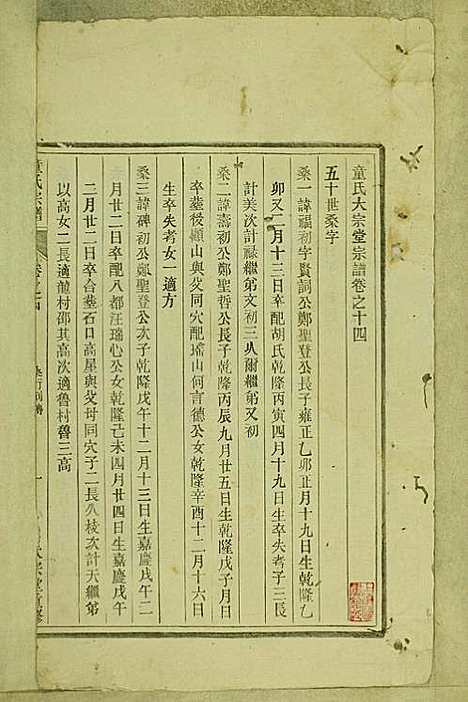 童氏大宗堂宗譜卷之十四
五十世桑字
桑一諱福初字賢詞公鄭聖登公長子雍正乙卯正月十九日生乾隆乙
卯又二月十三日卒配胡氏乾隆丙寅四月十九日生卒失考子三長
計美次計祿繼弟文初三八爾繼弟又初
桑二諱壽初公鄭聖哲公長子乾隆丙辰九月廿五日生乾隆戊子月日
卒墓後巓山與父同穴配瑤山何言德公女乾隆辛酉十二月十六日
生卒失考女一適方
桑三諱碑初公鄭聖登公次子乾隆戊午十二月十三日生嘉慶戊午二
月廿二日卒配八都汪瑞心公女乾隆己未四月廿四日生嘉慶戊午
二月廿二日卒合墓石口高星與父母同穴子二長八枝次計天繼弟
以高女二長適龍村邵其高次適魯村魯三高
童氏宗譜
卷之十四
一
大宗堂重修